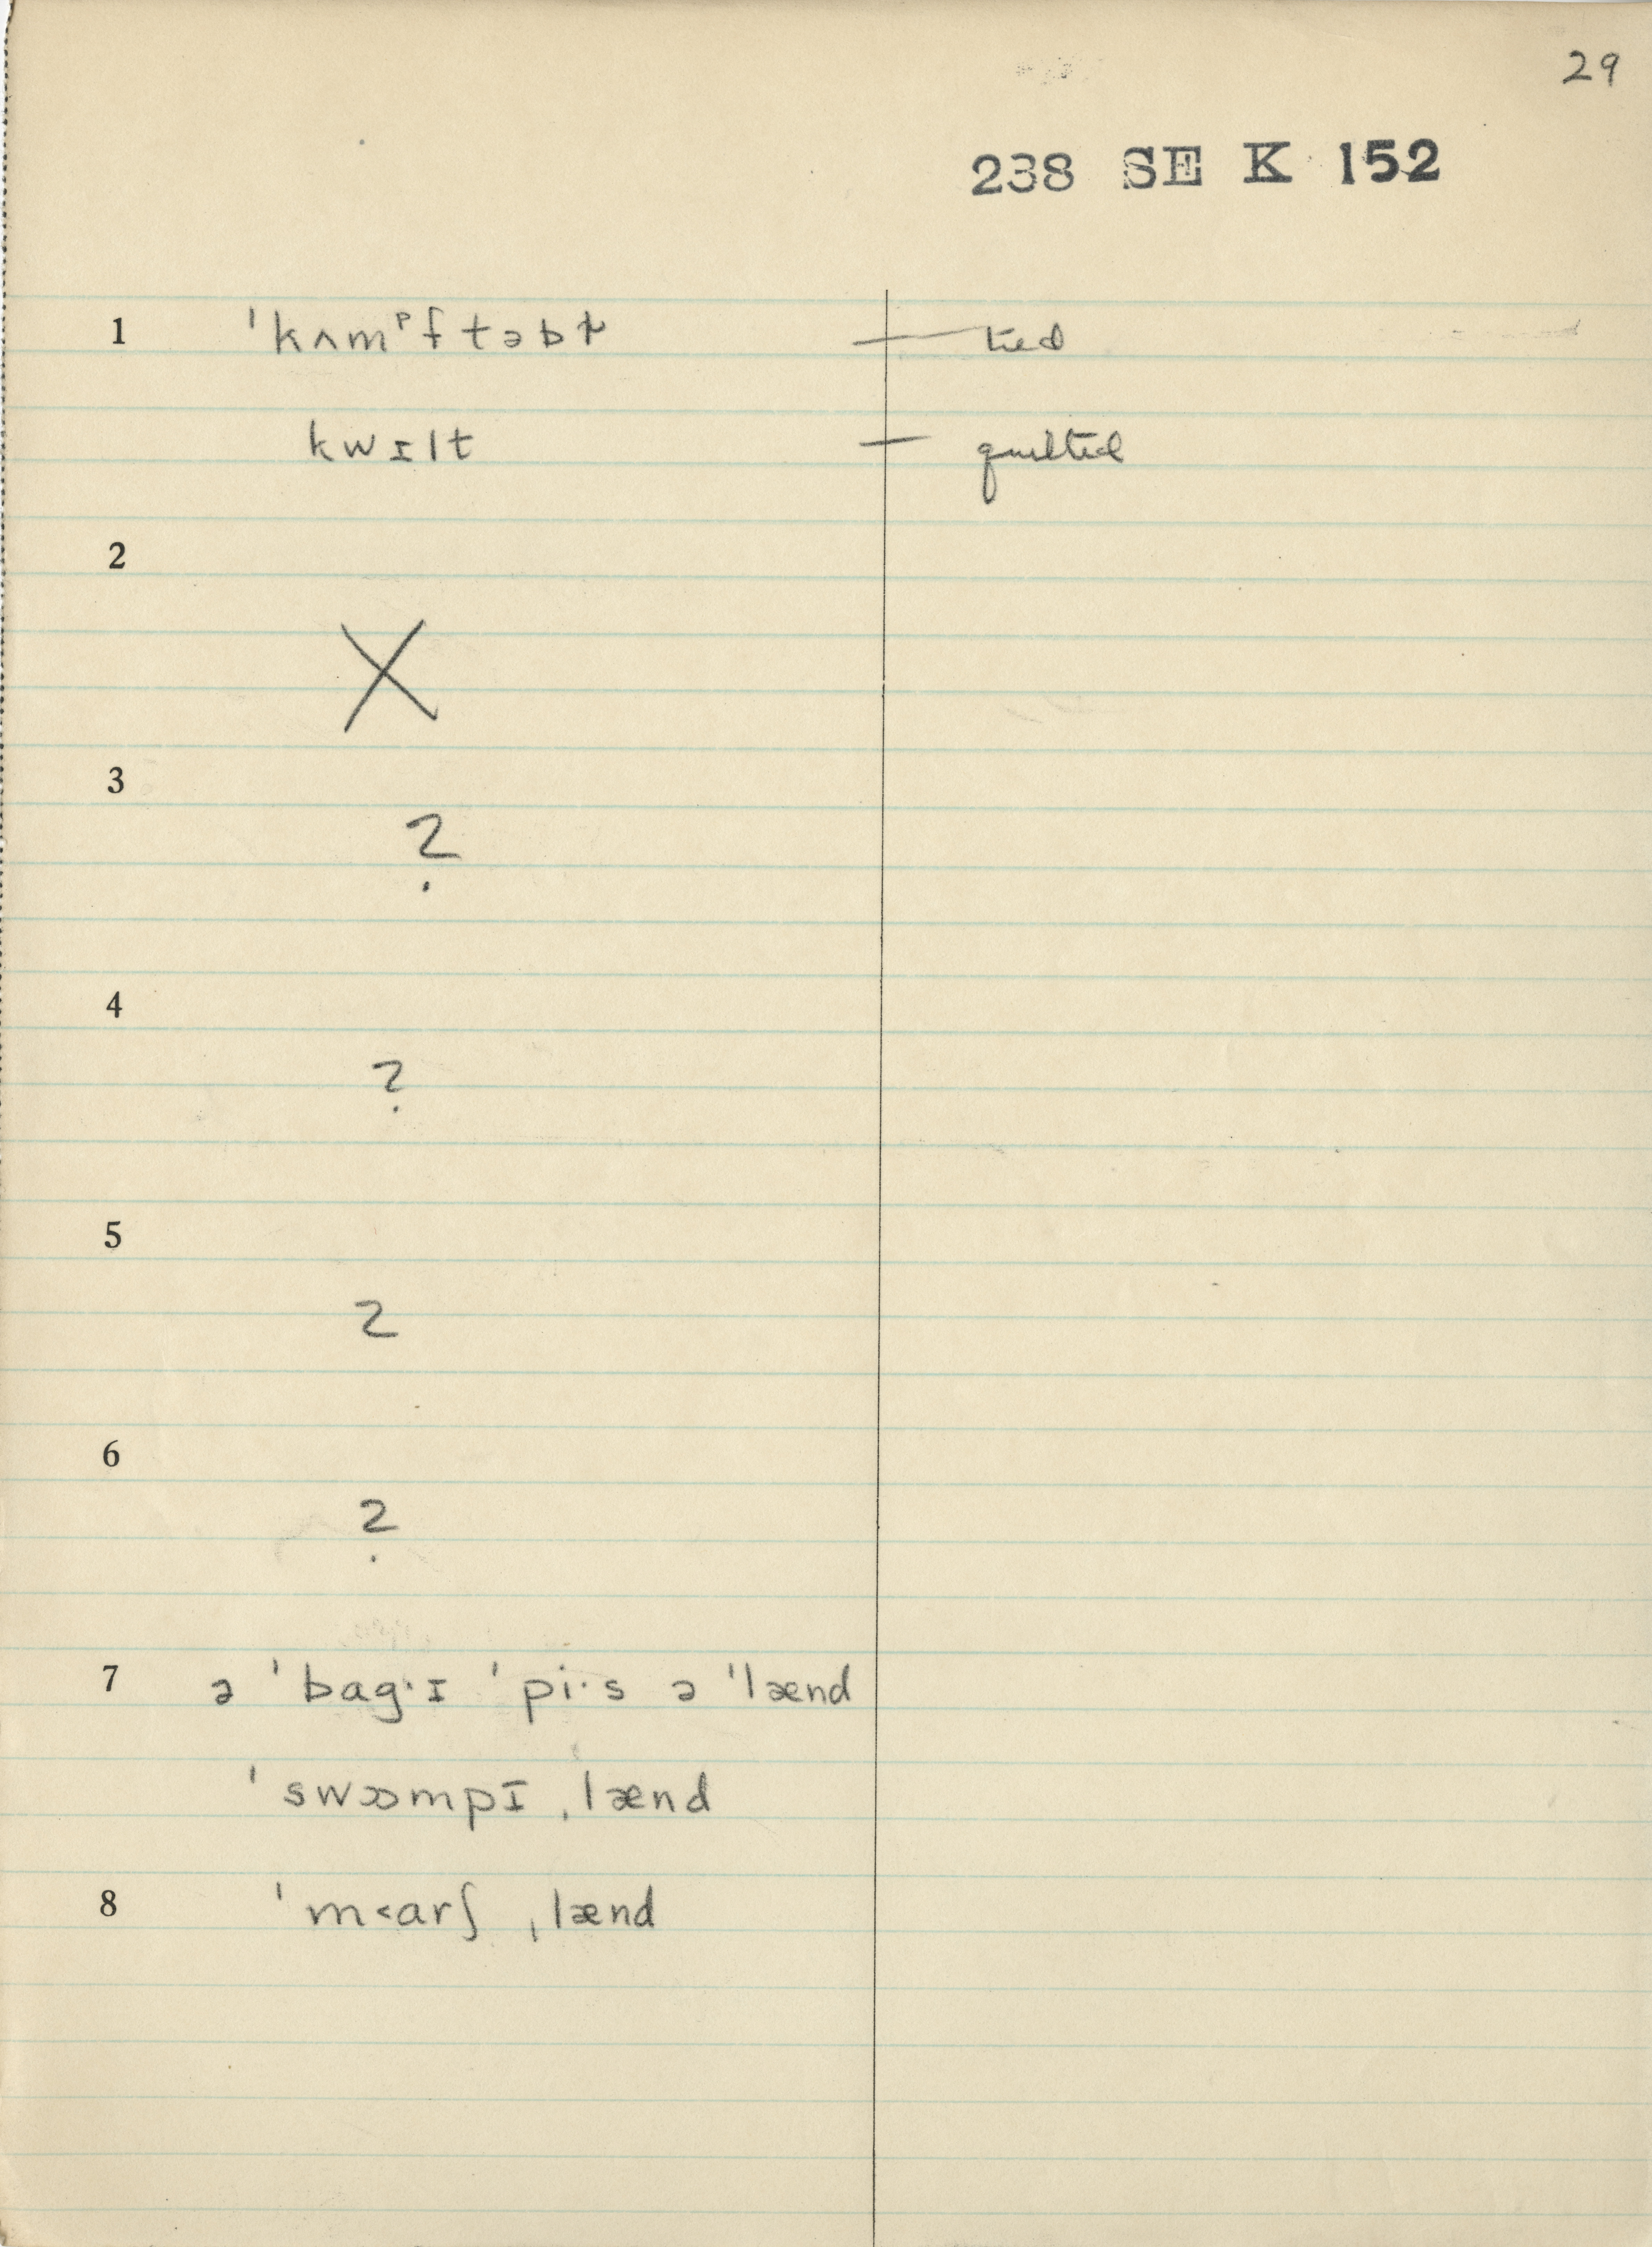 29
238 SE K 152
1 ˈkʌmᵖftəbɫ — tied
kwɪlt — quilted
2
X
3
?
4
?
5
?
6
?
7 ə ˈbag·ɪ ˈpi·s ə ˈlænd
ˈswɒmpɪ ˌlænd
8 ˈm<arʃ ˌlænd